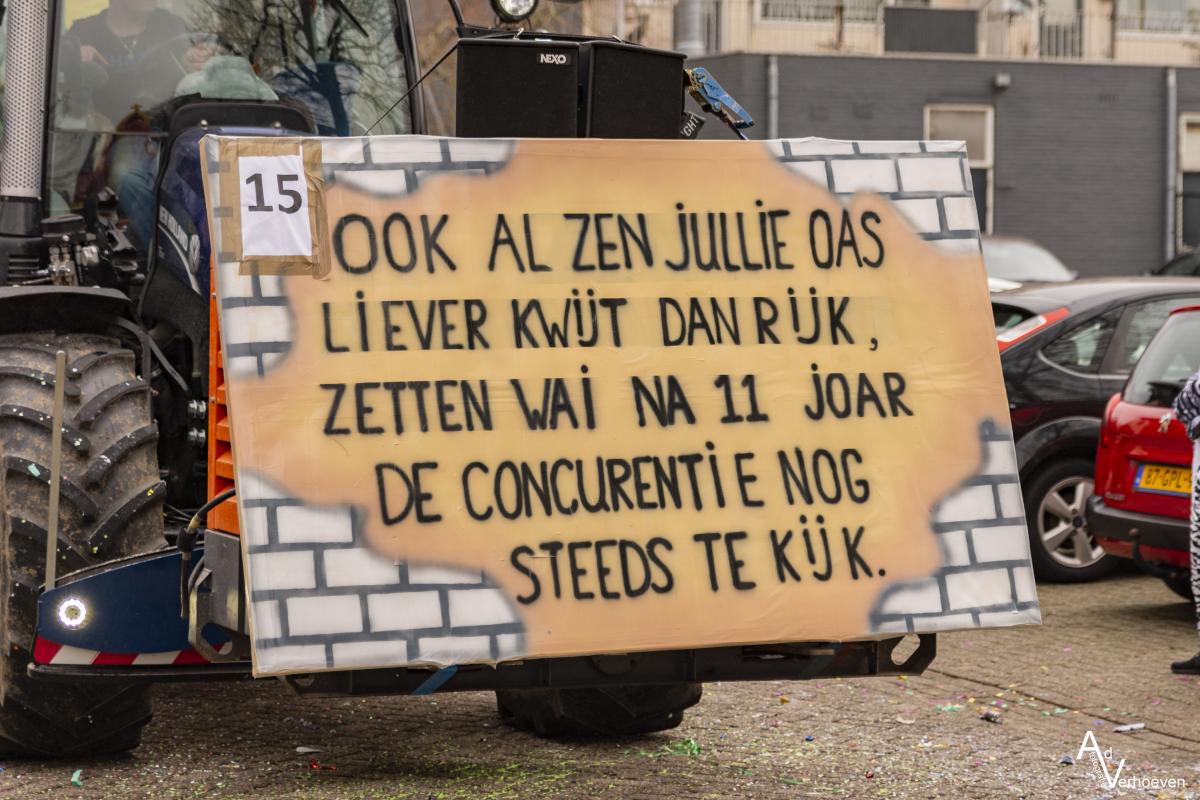 NEXO
GHT
15
OOK AL ZEN JULLIE OAS
LIEVER KWIJT DAN RIJK,
ZETTEN WAI NA 11 JOAR
DE CONCURENTIE NOG
STEEDS TE KIJK.
NEW HOLLAND
87-GPL-
Ad
Verhoeven